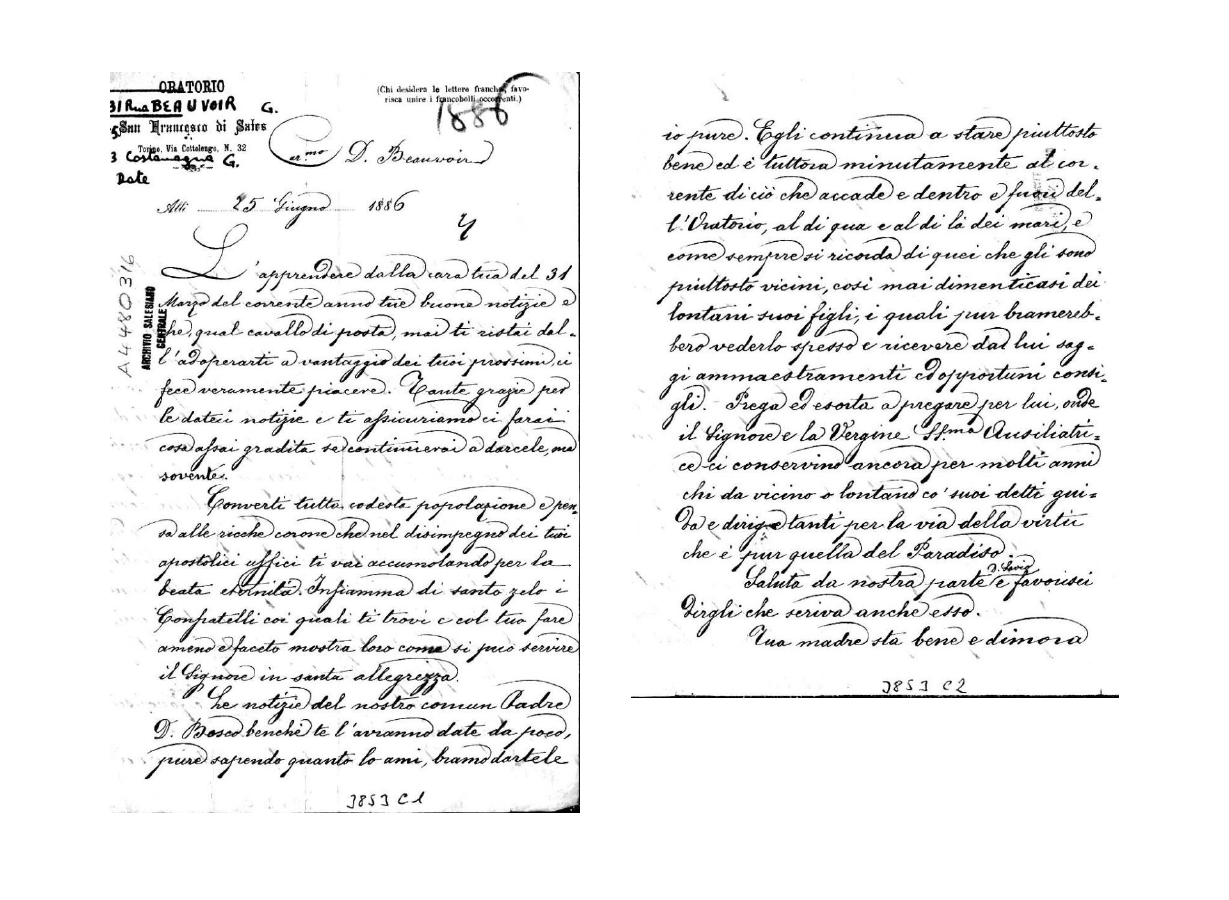 ORATORIO
31 Rua BEAUVOIR G.
San Francesco di Sales
Torino, Via Cottolengo, N. 32
3 Costamagna G.
Date
(Chi desidera le lettere franche, favo-
risca unire i francobolli occorrenti.)
1886
Car.mo D. Beauvoir
Alli 25 Giugno 1886
A4480316
ARCHIVIO SALESIANO
CENTRALE
L'apprendere dalla cara tua del 31
Marzo del corrente anno tue buone notizie e
che, qual cavallo di posta, mai ti ristai dal-
l'adoperarti a vantaggio dei tuoi prossimi, ci
fece veramente piacere. Tante grazie per
le dateci notizie e ti assicuriamo ci farai
cosa assai gradita se continuerai a darcele, ma
sovente.
Converti tutta codesta popolazione e pen-
sa alle ricche corone che nel disimpegno dei tuoi
apostolici uffici ti vai accumolando per la
beata eternità. Infiamma di santo zelo i
Confratelli coi quali ti trovi e col tuo fare
ameno e faceto mostra loro come si può servire
il Signore in santa allegrezza.
Le notizie del nostro comun Padre
D. Bosco benchè te l'avranno date da poco,
pure sapendo quanto lo ami, bramo dartele
3853 C1
io pure. Egli continua a stare piuttosto
bene ed è tuttora minutamente al cor-
rente di ciò che accade e dentro e fuori del-
l'Oratorio, al di qua e al di là dei mari, e
come sempre si ricorda di quei che gli sono
piuttosto vicini, così mai dimenticasi dei
lontani suoi figli, i quali pur bramereb-
bero vederlo spesso e ricevere dal lui sag-
gi ammaestramenti ed opportuni consi-
gli. Prega ed esorta a pregare per lui, onde
il Signore e la Vergine SS.ma Ausiliatri-
ce ci conservino ancora per molti anni
chi da vicino o lontano co' suoi detti gui-
da e dirige tanti per la via della virtù
che è pur quella del Paradiso.
Saluta da nostra parte D. Savio e favorisci
dirgli che scriva anche esso.
Tua madre sta bene e dimora
3853 C2